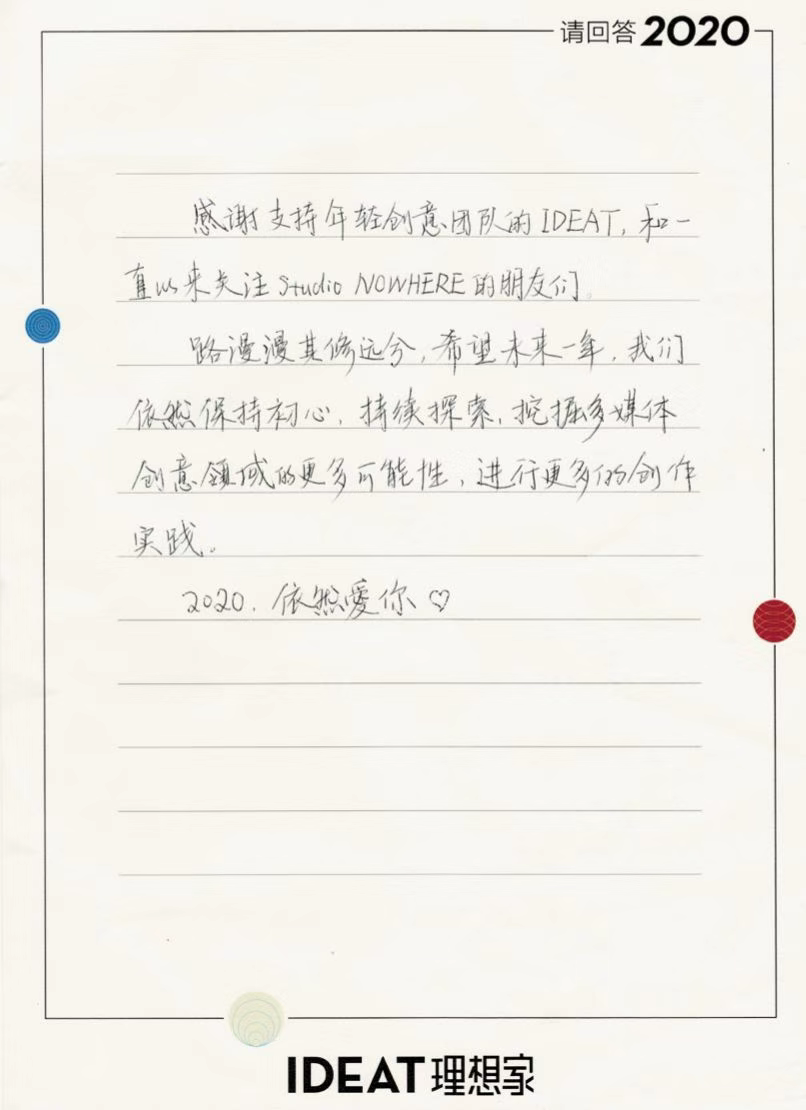 请回答2020
感谢支持年轻创意团队的IDEAT,和一
直以来关注Studio NOWHERE的朋友们。
路漫漫其修远兮,希望未来一年,我们
依然保持初心,持续探索,挖掘多媒体
创意领域的更多可能性,进行更多的创作
实践。
2020,依然愛你♡
IDEAT理想家